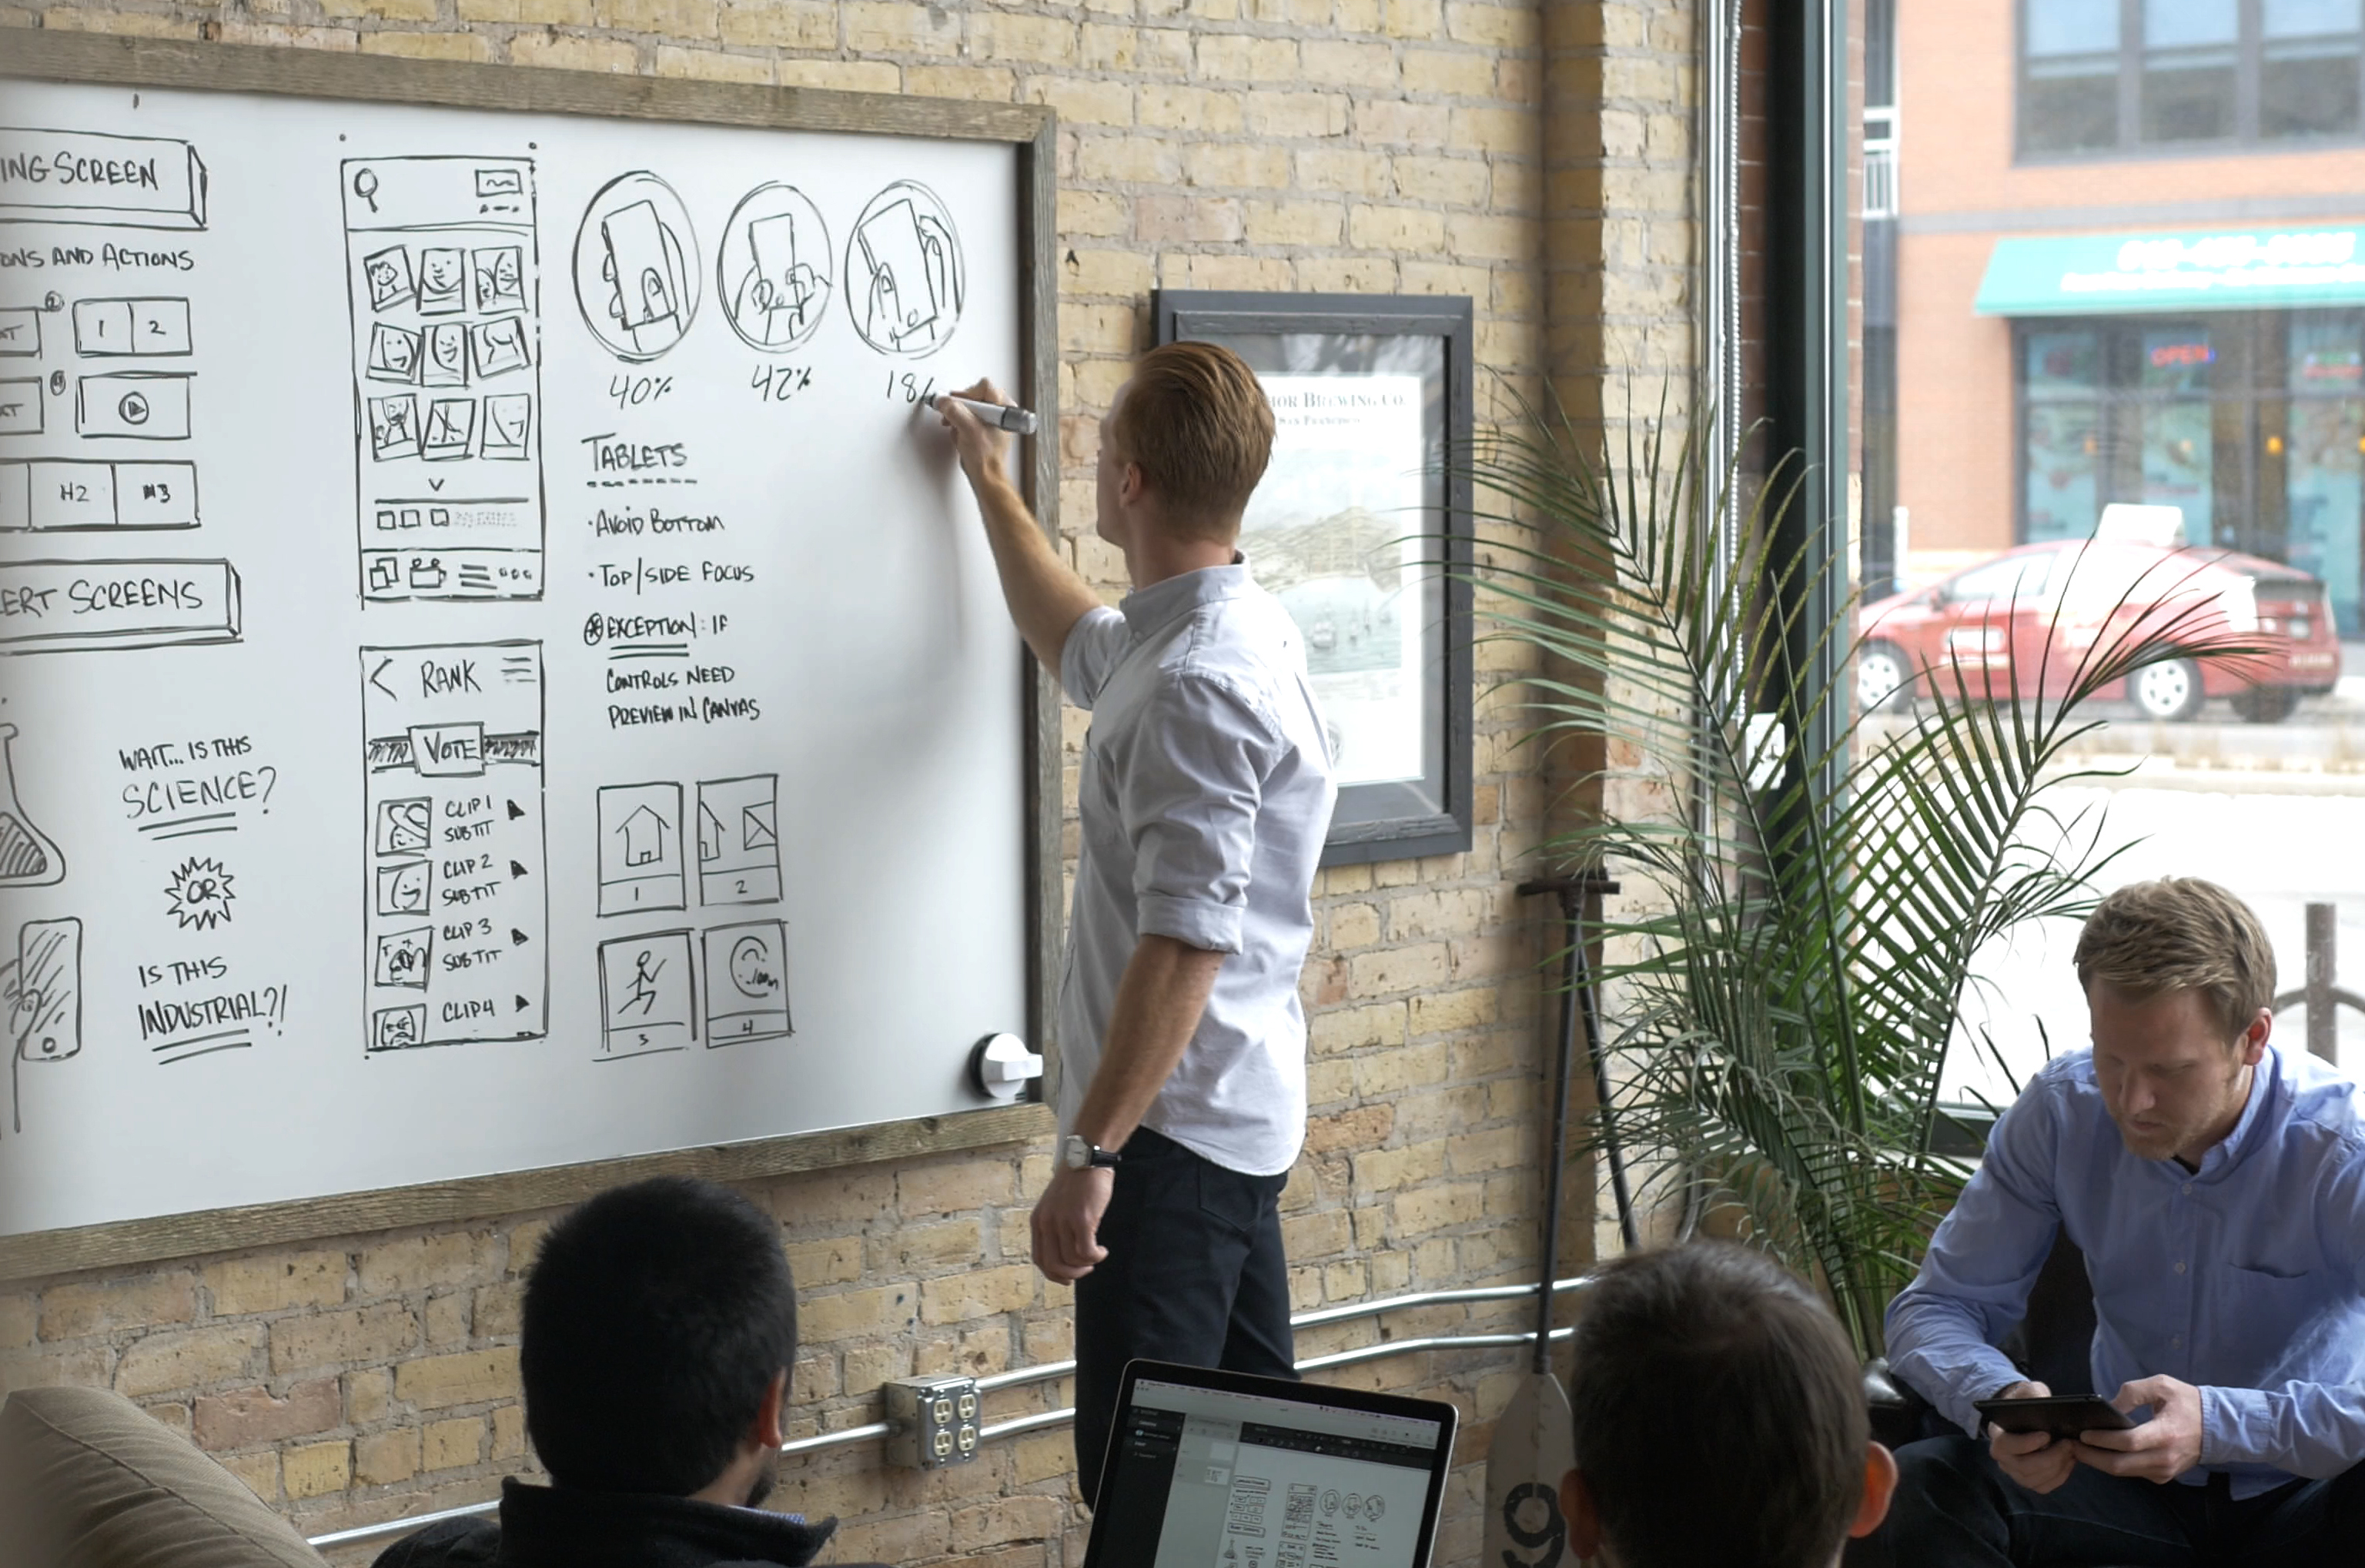 ING SCREEN
ONS AND ACTIONS
1 2
H2 H3
ERT SCREENS
WAIT... IS THIS
SCIENCE?
OR
IS THIS
INDUSTRIAL?!
RANK
VOTE
CLIP 1
SUBTIT
CLIP 2
SUBTIT
CLIP 3
SUBTIT
CLIP 4
40%
42%
18%
TABLETS
• AVOID BOTTOM
• TOP/SIDE FOCUS
* EXCEPTION: IF
CONTROLS NEED
PREVIEW IN CANVAS
1
2
3
4
HOR BREWING CO.
SAN FRANCISCO
OPEN
9